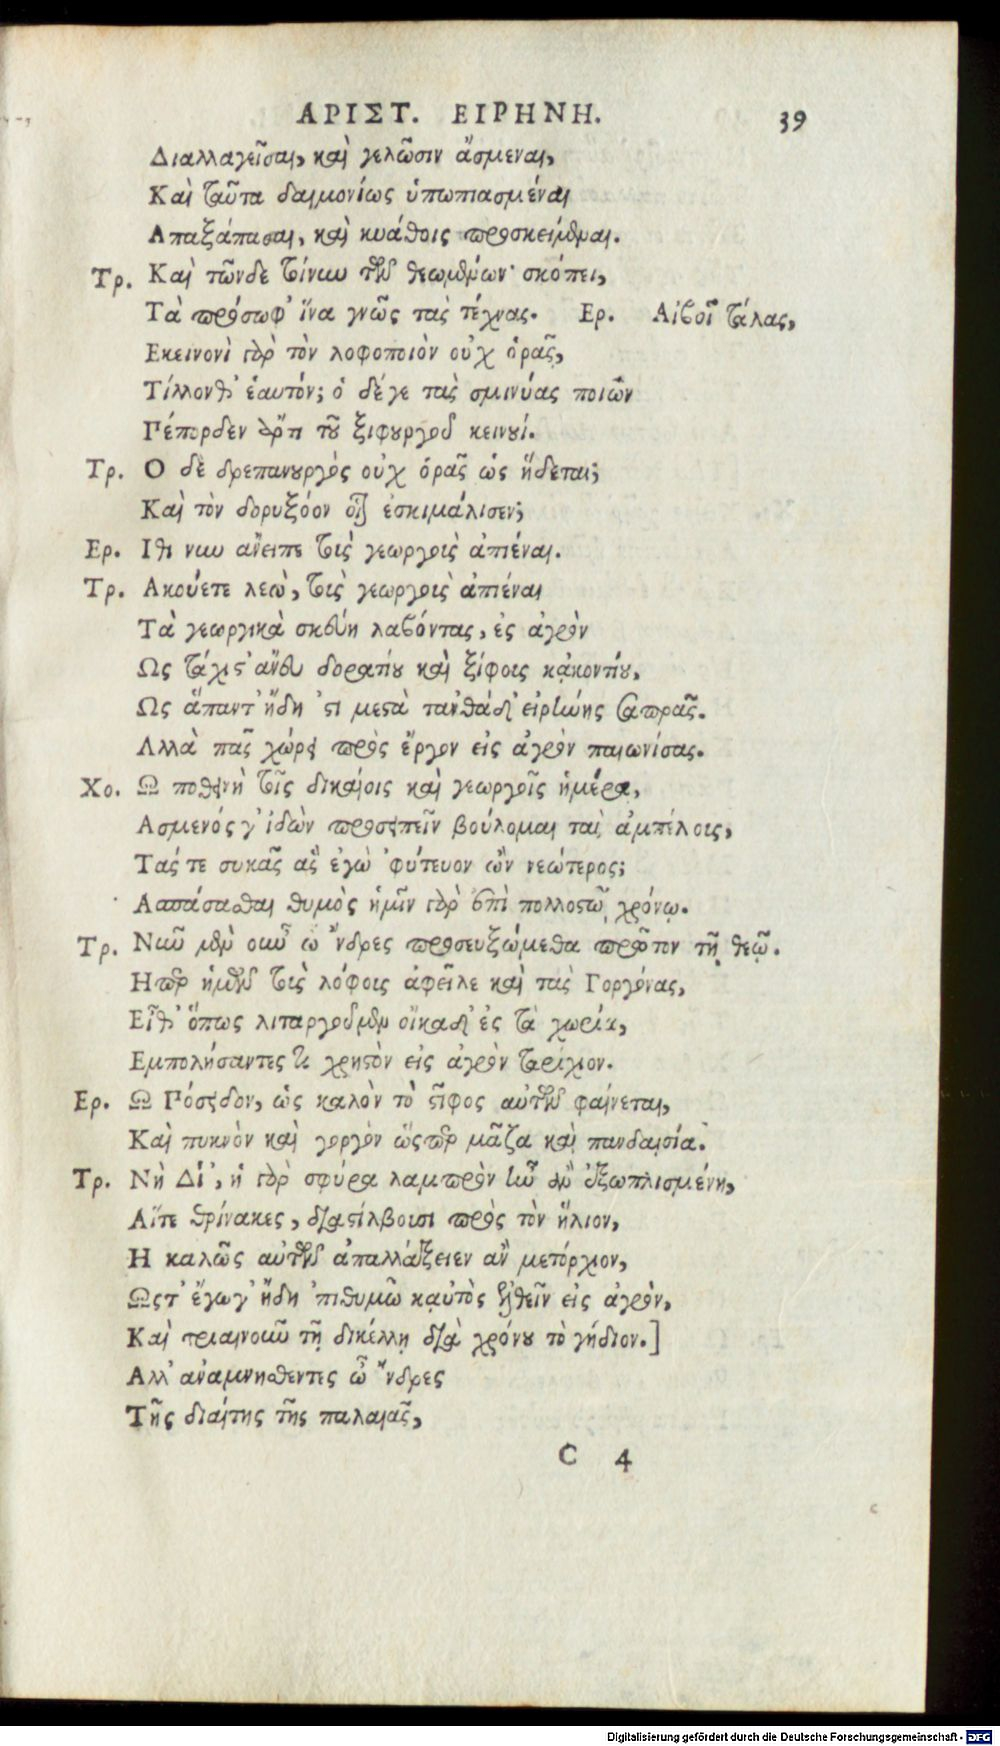 ΑΡΙΣΤ. ΕΙΡΗΝΗ. 39
Διαλλαγεῖσαι, καὶ γελῶσιν ἄσμεναι,
Καὶ ταῦτα δαιμονίως ὑπωπιασμέναι
Απαξάπασαι, καὶ κυάθοις προσκείμεναι.
Τρ. Καὶ τῶνδε τοίνυν τῶν θεωμένων σκόπει,
Τὰ πρόσωφ' ἵνα γνῶς τὰς τέχνας. Ερ. Αἰβοῖ τάλας,
Εκεινονὶ γὰρ τὸν λοφοποιὸν οὐχ ὁρᾷς,
Τίλλονθ' ἑαυτόν; ὁ δέ γε τὰς σμινύας ποιῶν
Πέπορδεν ἄρτι τοῦ ξιφουργοῦ κεινουί.
Τρ. Ο δὲ δρεπανουργὸς οὐχ ὁρᾷς ὡς ἥδεται;
Καὶ τὸν δορυξόον οἷον ἐσκιμάλισεν;
Ερ. Ιθι νυν ἄνειπε τοὺς γεωργοὺς ἀπιέναι.
Τρ. Ακούετε λεῲ, τοὺς γεωργοὺς ἀπιέναι
Τὰ γεωργικὰ σκεύη λαβόντας, ἐς ἀγρὸν
Ως τάχιστ' ἄνευ δορατίου καὶ ξίφους κᾀκοντίου,
Ως ἅπαντ' ἤδη 'στι μεστὰ τανθάδ' εἰρήνης σαπρᾶς.
Αλλὰ πᾶς χώρει πρὸς ἔργον εἰς ἀγρὸν παιωνίσας.
Χο. Ω ποθεινὴ τοῖς δικαίοις καὶ γεωργοῖς ἡμέρα,
Ασμενός γ' ἰδὼν προσειπεῖν βούλομαι ταὶς ἀμπέλοις,
Τάς τε συκᾶς ἃς ἐγὼ 'φύτευον ὢν νεώτερος;
Ασπάσασθαι θυμὸς ἡμῖν γὰρ ἐπὶ πολλοστῷ χρόνῳ.
Τρ. Νυῦ μὲν οὖν ὦ 'νδρες προσευξώμεθα πρῶτον τῇ θεῷ.
Ηπερ ἡμῶν τοὺς λόφους ἀφεῖλε καὶ τὰς Γοργόνας,
Εἶθ' ὅπως λιταργοῦμεν οἴκαδ' ἐς τὰ χωρία,
Εμπολήσαντές τι χρηστὸν εἰς ἀγρὸν ταρίχιον.
Ερ. Ω Πόσειδον, ὡς καλὸν τὸ στῖφος αὐτῶν φαίνεται,
Καὶ πυκνὸν καὶ γοργὸν ὥσπερ μᾶζα καὶ πανδαισία.
Τρ. Νὴ Δί', ἡ γὰρ σφύρα λαμπρὸν ἦν ἂν ἐξωπλισμένη,
Αἵτε θρίνακες, διαστίλβουσι πρὸς τὸν ἥλιον,
Η καλῶς αὐτῶν ἀπαλλάξειεν ἂν μετόρχιον,
Ωστ' ἔγωγ' ἤδη 'πιθυμῶ καὐτὸς ἐλθεῖν εἰς ἀγρὸν,
Καὶ τριαινοῦν τῇ δικέλλῃ διὰ χρόνου τὸ γήδιον.]
Αλλ' ἀναμνησθεντες ὦ 'νδρες
Τῆς διαίτης τῆς παλαιᾶς,
C 4
Digitalisierung gefördert durch die Deutsche Forschungsgemeinschaft - DFG